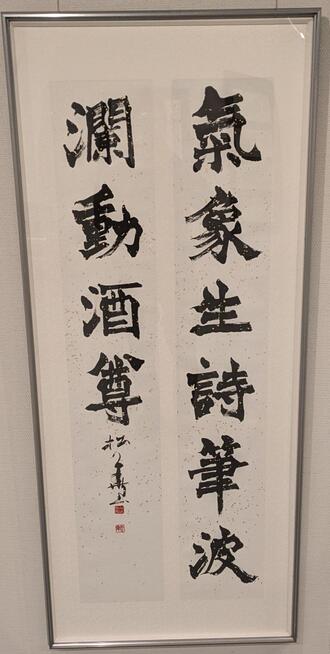 氣象生詩筆波
瀾動酒尊